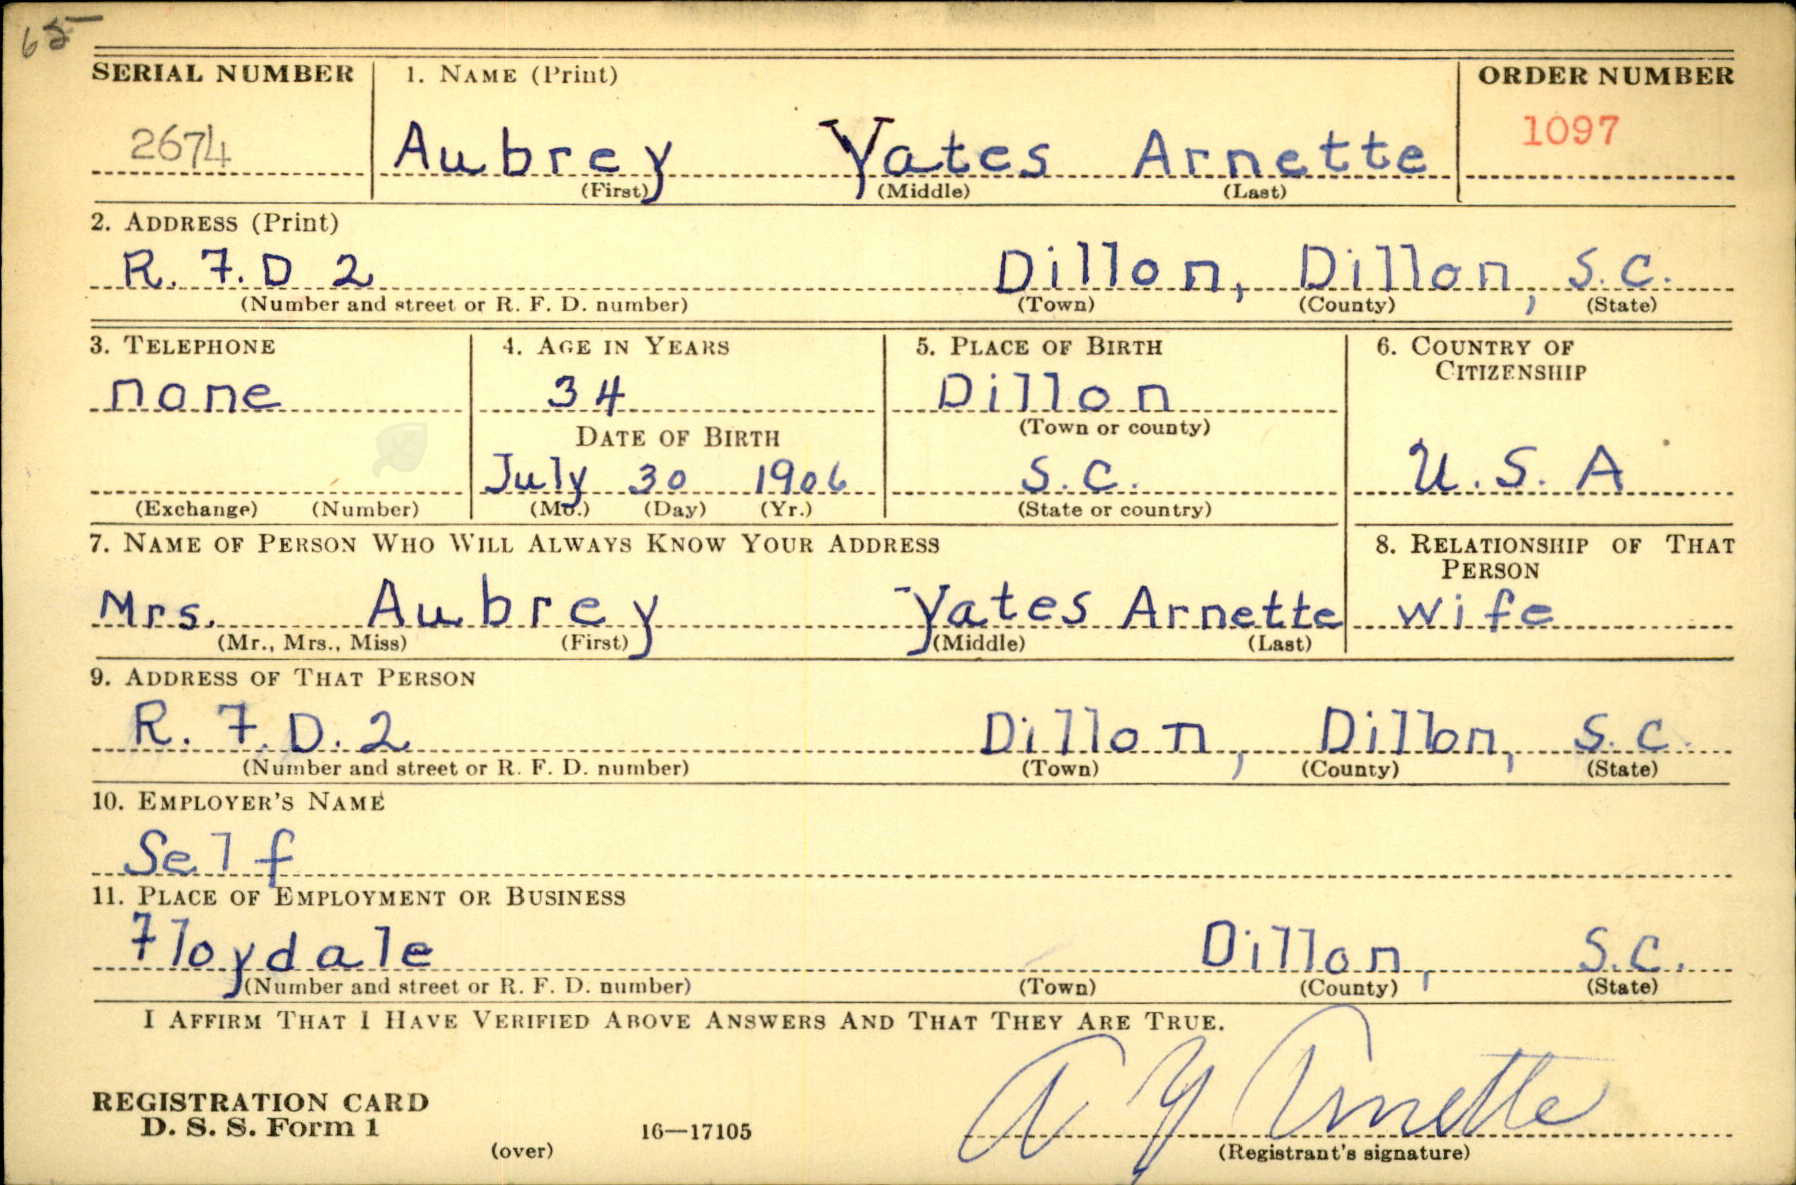 65
SERIAL NUMBER 1. NAME (Print) ORDER NUMBER
2674 Aubrey Yates Arnette 1097
(First) (Middle) (Last)
2. ADDRESS (Print)
R. F. D 2 Dillon, Dillon, S. C.
(Number and street or R. F. D. number) (Town) (County) (State)
3. TELEPHONE 4. AGE IN YEARS 5. PLACE OF BIRTH 6. COUNTRY OF
CITIZENSHIP
none 34 Dillon
DATE OF BIRTH (Town or county)
July 30 1906 S. C. U. S. A
(Exchange) (Number) (Mo.) (Day) (Yr.) (State or country)
7. NAME OF PERSON WHO WILL ALWAYS KNOW YOUR ADDRESS 8. RELATIONSHIP OF THAT
PERSON
Mrs. Aubrey Yates Arnette wife
(Mr., Mrs., Miss) (First) (Middle) (Last)
9. ADDRESS OF THAT PERSON
R. F. D. 2 Dillon, Dillon, S. C.
(Number and street or R. F. D. number) (Town) (County) (State)
10. EMPLOYER'S NAME
Self
11. PLACE OF EMPLOYMENT OR BUSINESS
Floydale Dillon, S. C.
(Number and street or R. F. D. number) (Town) (County) (State)
I AFFIRM THAT I HAVE VERIFIED ABOVE ANSWERS AND THAT THEY ARE TRUE.
REGISTRATION CARD
D. S. S. Form 1 16—17105 A Y Arnette
(over) (Registrant's signature)